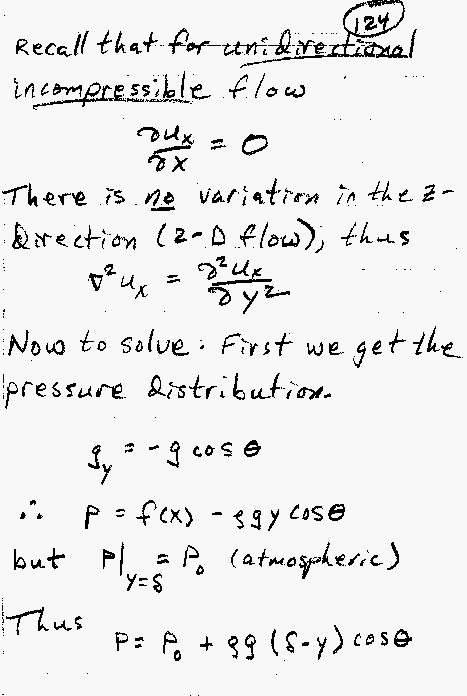 124
Recall that for unidirectional
incompressible flow
∂uₓ/∂x = 0
There is no variation in the z-
direction (2-D flow), thus
∇²uₓ = ∂²uₓ/∂y²
Now to solve: First we get the
pressure distribution.
g_y = -g cos θ
∴ P = f(x) - ρgy cos θ
but P|_{y=δ} = P₀ (atmospheric)
Thus
P = P₀ + ρg (δ-y) cos θ